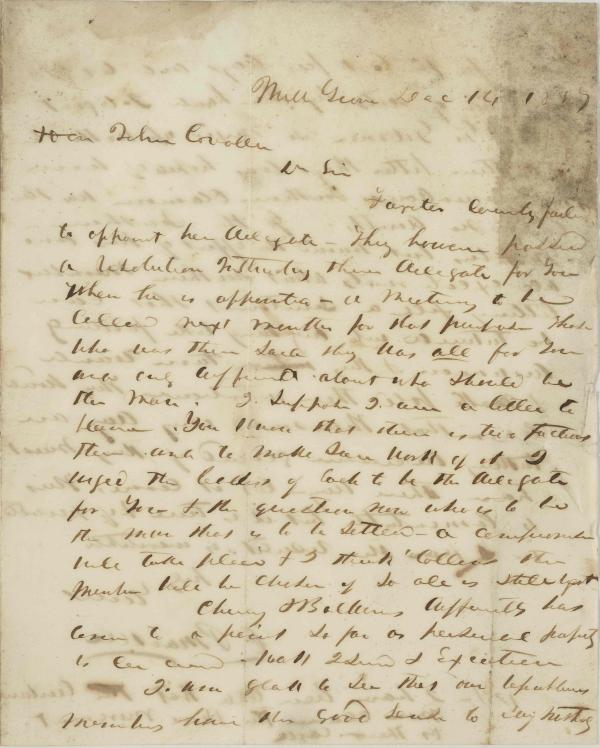 Mill Grove Dec 14 18
John Covode
Dr Sir
Fayette County failed
to appoint her Delegate – They however passed
a Resolution Instructing their Delegate for You
When he is appointed – a Meeting to be
Called next month for that purpose Those
who was there Said they was all for You
and only differed about who Should be
the Man. I Suppose I am a letter to
. You know that there is two factions
there and to make Sure Work of it I
urged the leaders of both to be the Delegate
for You – & the question now who is to be
the man that is to be Settled – a compromise
will take place & I think Collens the
Member will be Chosen if So all is Still right
Cherry & has
to a point So far as personal property
is – & Execution
I am glad to See that our republican
Members have the good Sense to